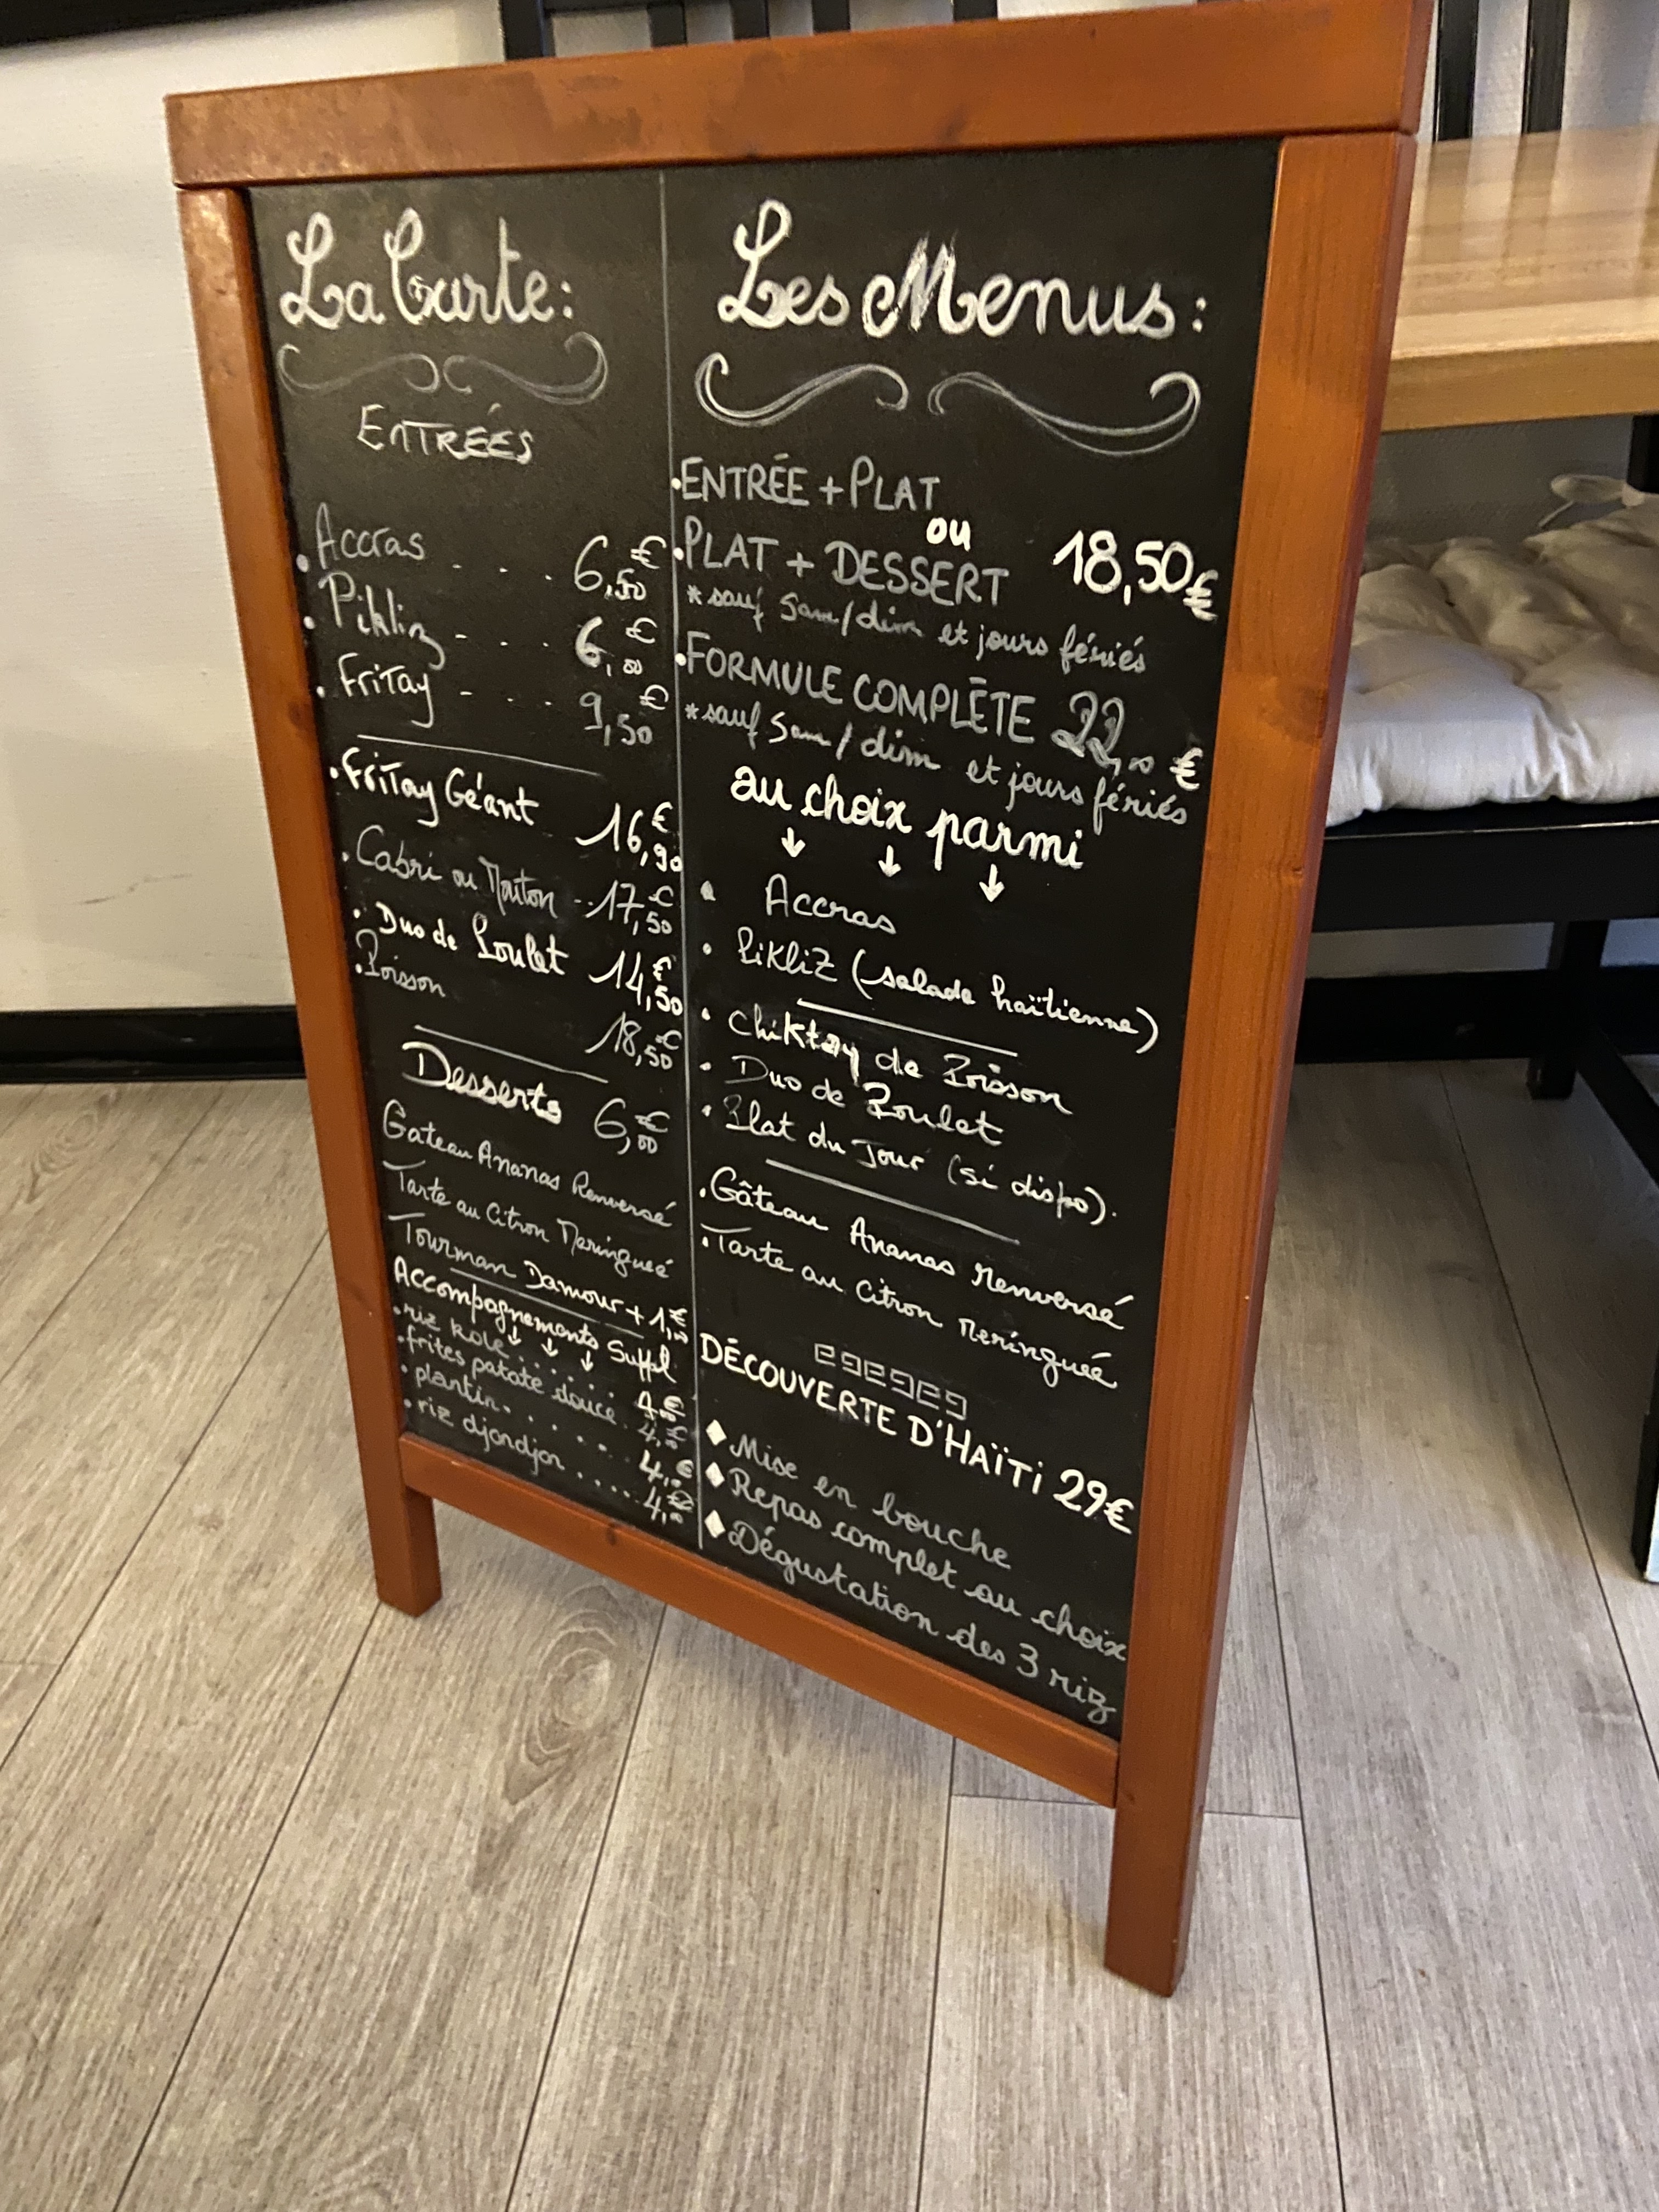 La Carte:
ENTRÉES
. Accras . . . 6,50€
. Pikliz - . . . 6,00€
. Fritay - . . . 9,50€
. Fritay Géant 16,90€
. Cabri ou Mouton -- 17,50€
. Duo de Poulet 14,50€
. Poisson 18,50€
Desserts 6,00€
Gateau Ananas Renversé
Tarte au Citron Meringueé
Tourman Damour + 1,00€
Accompagnements Suppl
↓ ↓ ↓
. riz kole . . . . . . . 4,00€
. frites patate douce . . 4,00€
. plantin . . . . . . 4,00€
. riz djondjon . . . . . 4,00€
Les Menus:
. ENTRÉE + PLAT
ou
. PLAT + DESSERT 18,50€
* sauf Sam/dim et jours fériés
. FORMULE COMPLÈTE 22,00€
* sauf Sam/dim et jours fériés
au choix parmi
↓ ↓ ↓
. Accras
. PikliZ (salade haïtienne)
. Chiktay de Poisson
. Duo de Poulet
. Plat du Jour (si dispo).
. Gâteau Ananas renversé
. Tarte au Citron meringueé
DÉCOUVERTE D'HAÏTI 29€
◆ Mise en bouche
◆ Repas complet au choix
◆ Dégustation des 3 riz